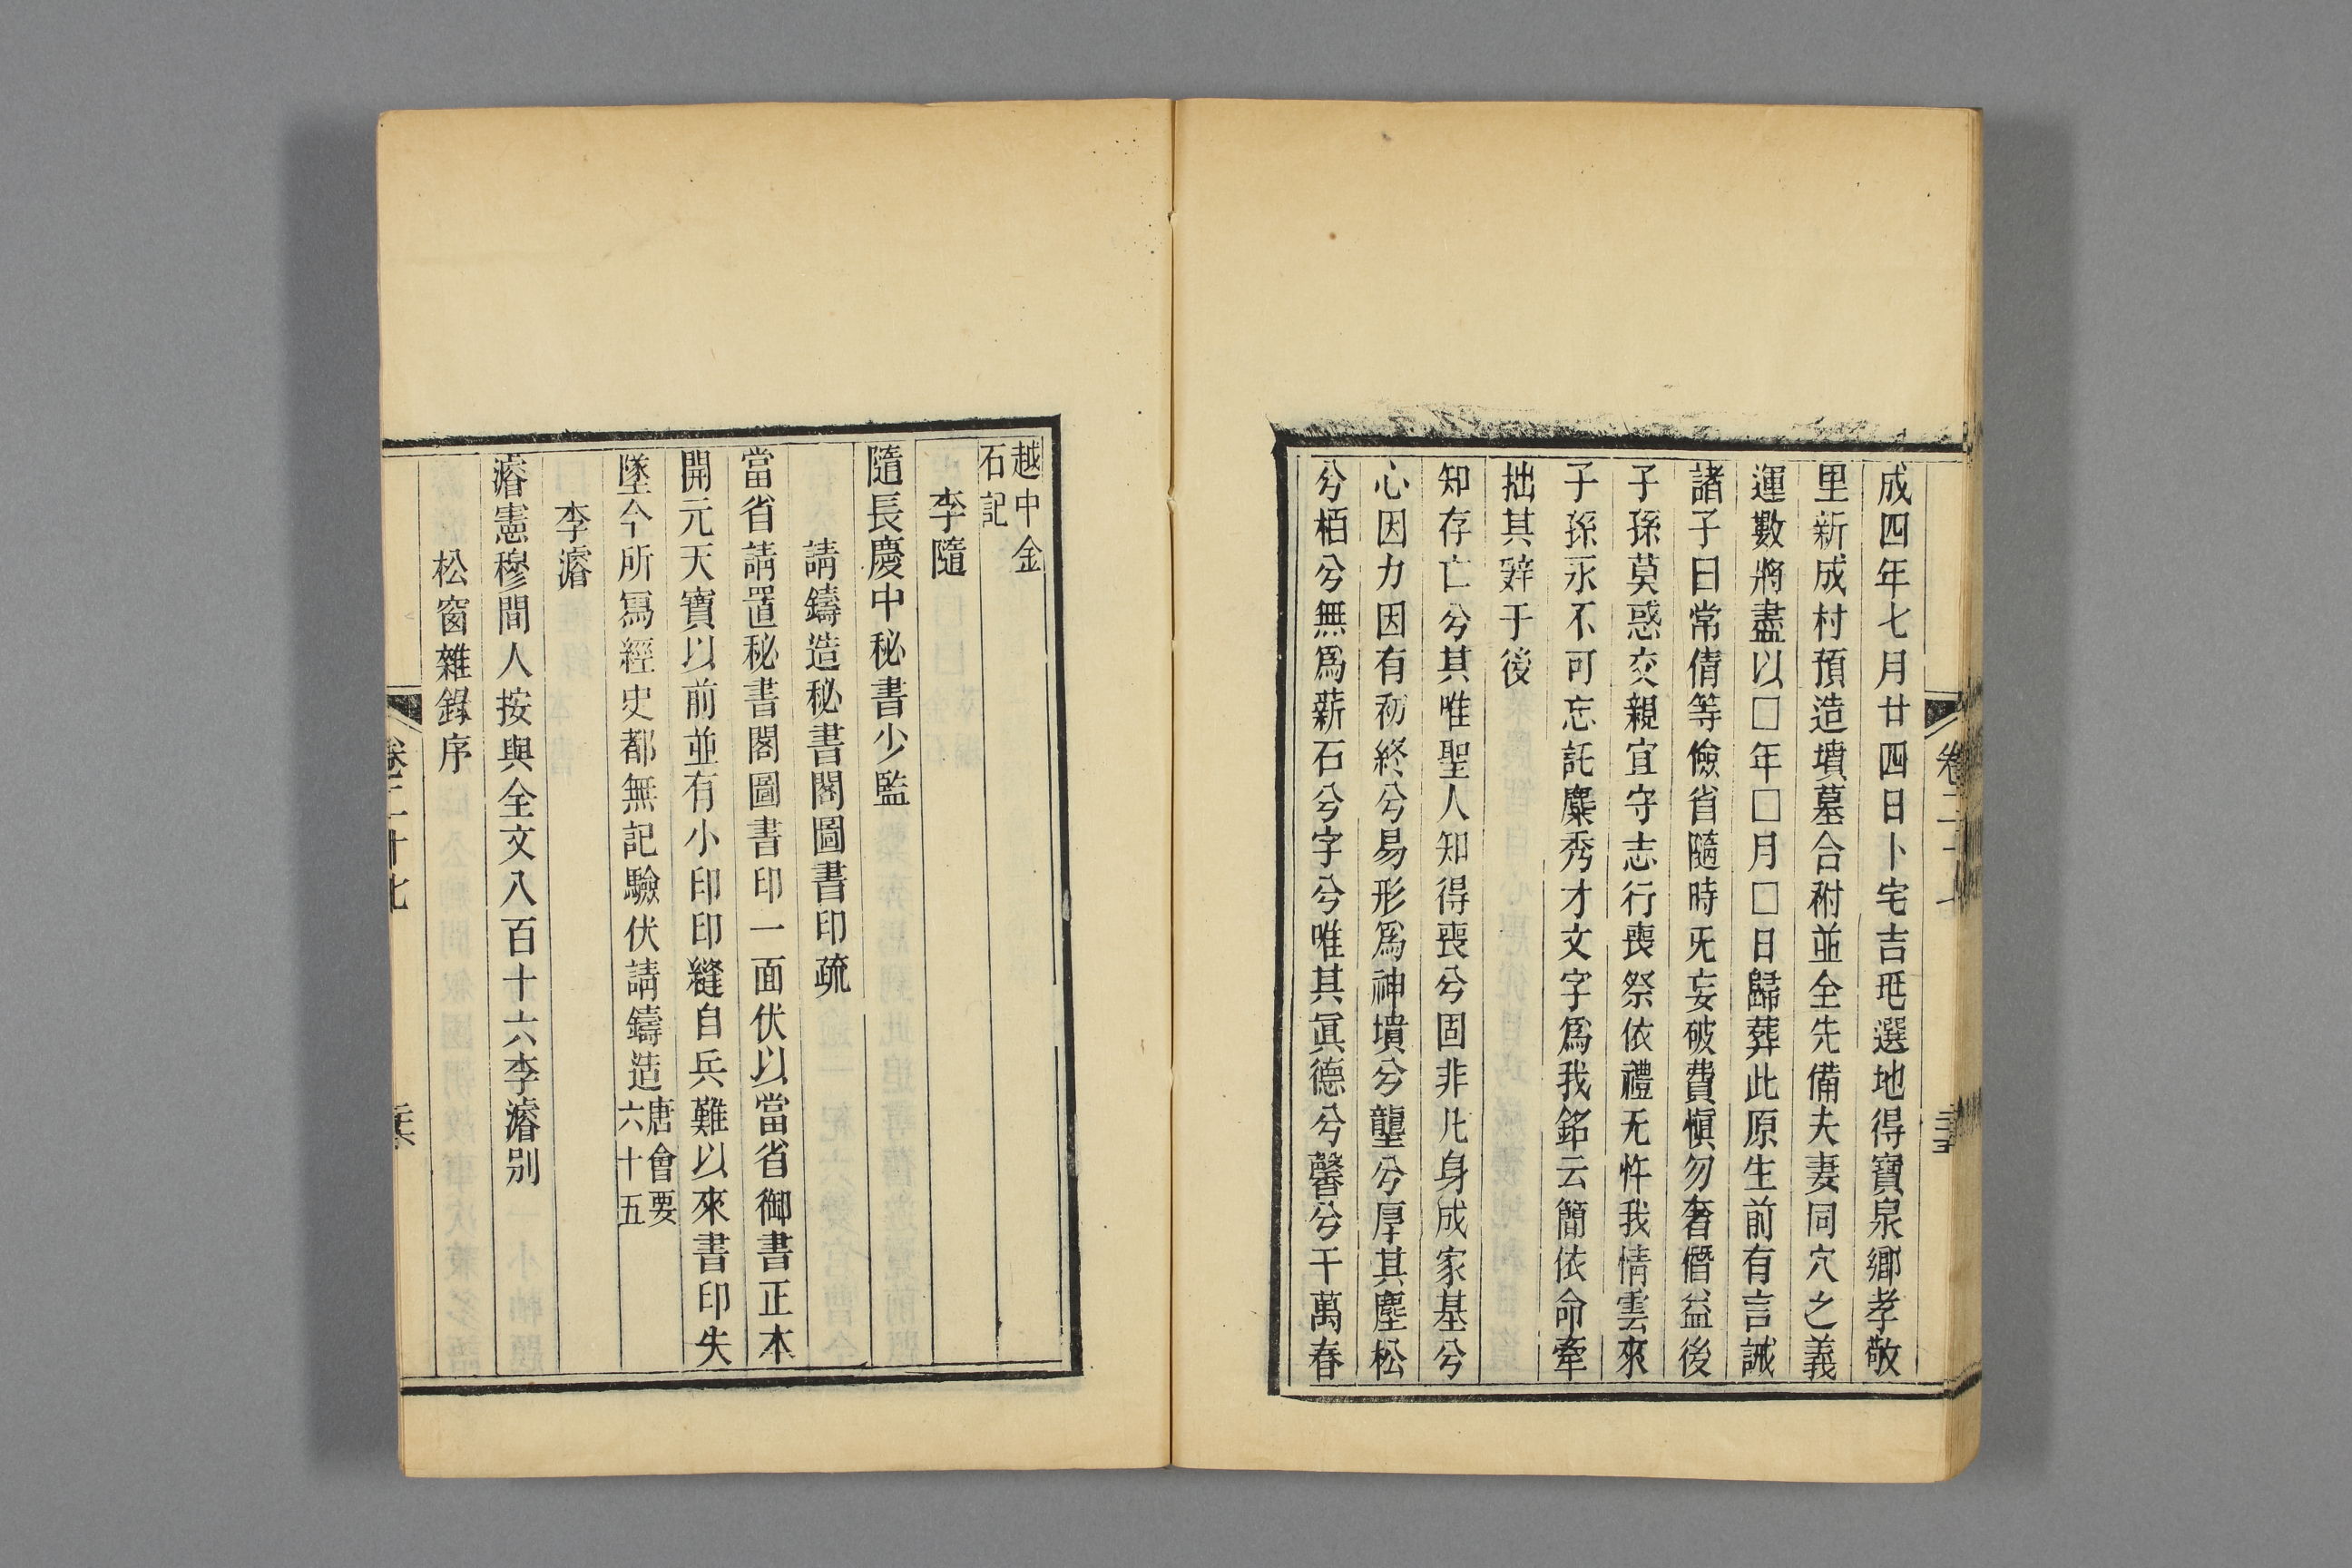 成四年七月廿四日卜宅吉兆選地得寶泉鄉孝敬
里新成村預造墳墓合祔並全先備夫妻同穴之義
運數將盡以□年□月□日歸葬此原生前有言誡
諸子曰常倩等儉省隨時旡妄破費愼勿奢僭益後
子孫莫惑交親宜守志行喪祭依禮无忤我情雲來
子孫永不可忘託麋秀才文字爲我銘云簡依命牽
拙其辤于後
知存亡兮其唯聖人知得喪兮固非凡身成家基兮
心因力因有初終兮易形爲神墳兮壟兮厚其塵松
兮栢兮無爲薪石兮字兮唯其眞德兮馨兮千萬春
卷二十七
越中金
石記
李隨
隨長慶中秘書少監
請鑄造秘書閣圖書印疏
當省請置秘書閣圖書印一面伏以當省御書正本
開元天寶以前並有小印印縫自兵難以來書印失
墜今所寫經史都無記驗伏請鑄造唐會要
六十五
李濬
濬憲穆間人按與全文八百十六李濬別
松窗雜錄序
卷二十七